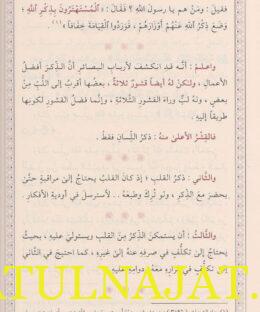 فقيلَ : ومَنْ هم يا رسولَ اللهِ ؟ فقالَ : « الْمُسْتَهْتَرُونَ بِذِكْرِ اللهِ ؛
وَضَعَ ذِكْرُ اللهِ عَنْهُمْ أَوْزَارَهُمْ ، فَوَرَدُوا الْقِيَامَةَ خِفَافاً »
واعلمْ : أنَّهُ قدِ انكشفَ لأربابِ البصائرِ أنَّ الذِّكرَ أفضلُ
الأعمالِ ، ولكنْ لهُ أيضاً قشورٌ ثلاثةٌ ، بعضُها أقربُ إلى اللُّبِّ مِنْ
بعضٍ ، ولهُ لُبٌّ وراءَ القشورِ الثَّلاثةِ ، وإنَّما فضلُ القشورِ لكونِها
طريقاً إليهِ .
فالقِشْرُ الأعلىٰ منهُ : ذكرُ اللِّسانِ فقطْ .
والثَّاني : ذكرُ القلبِ ؛ إذْ كانَ القلبُ يحتاجُ إلىٰ مراقبةٍ حتَّىٰ
يحضرَ معَ الذِّكرِ ، ولو تُرِكَ وطبعَهُ . . لاسترسلَ في أوديةِ الأفكارِ .
والثَّالثُ : أنْ يستمكنَ الذِّكرُ مِنَ القلبِ ويستوليَ عليهِ ، بحيثُ
يُحتاجُ إلىٰ تكلُّفٍ في صرفِهِ عنهُ إلىٰ غيرِهِ ، كما احتيجَ في الثَّاني
إلىٰ تكلُّفٍ في قرارِهِ معَهُ ودوامِهِ عليهِ
ATULNAJAT.